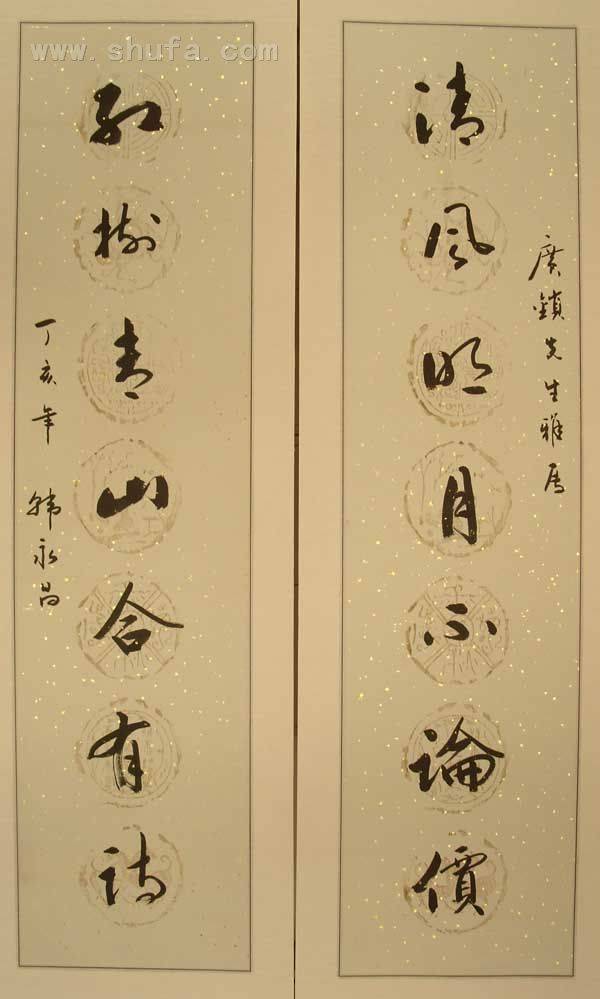 www.shufa.com
廣鎮先生雅属
清風明月不論價
紅樹青山合有詩
丁亥年 韩永昌